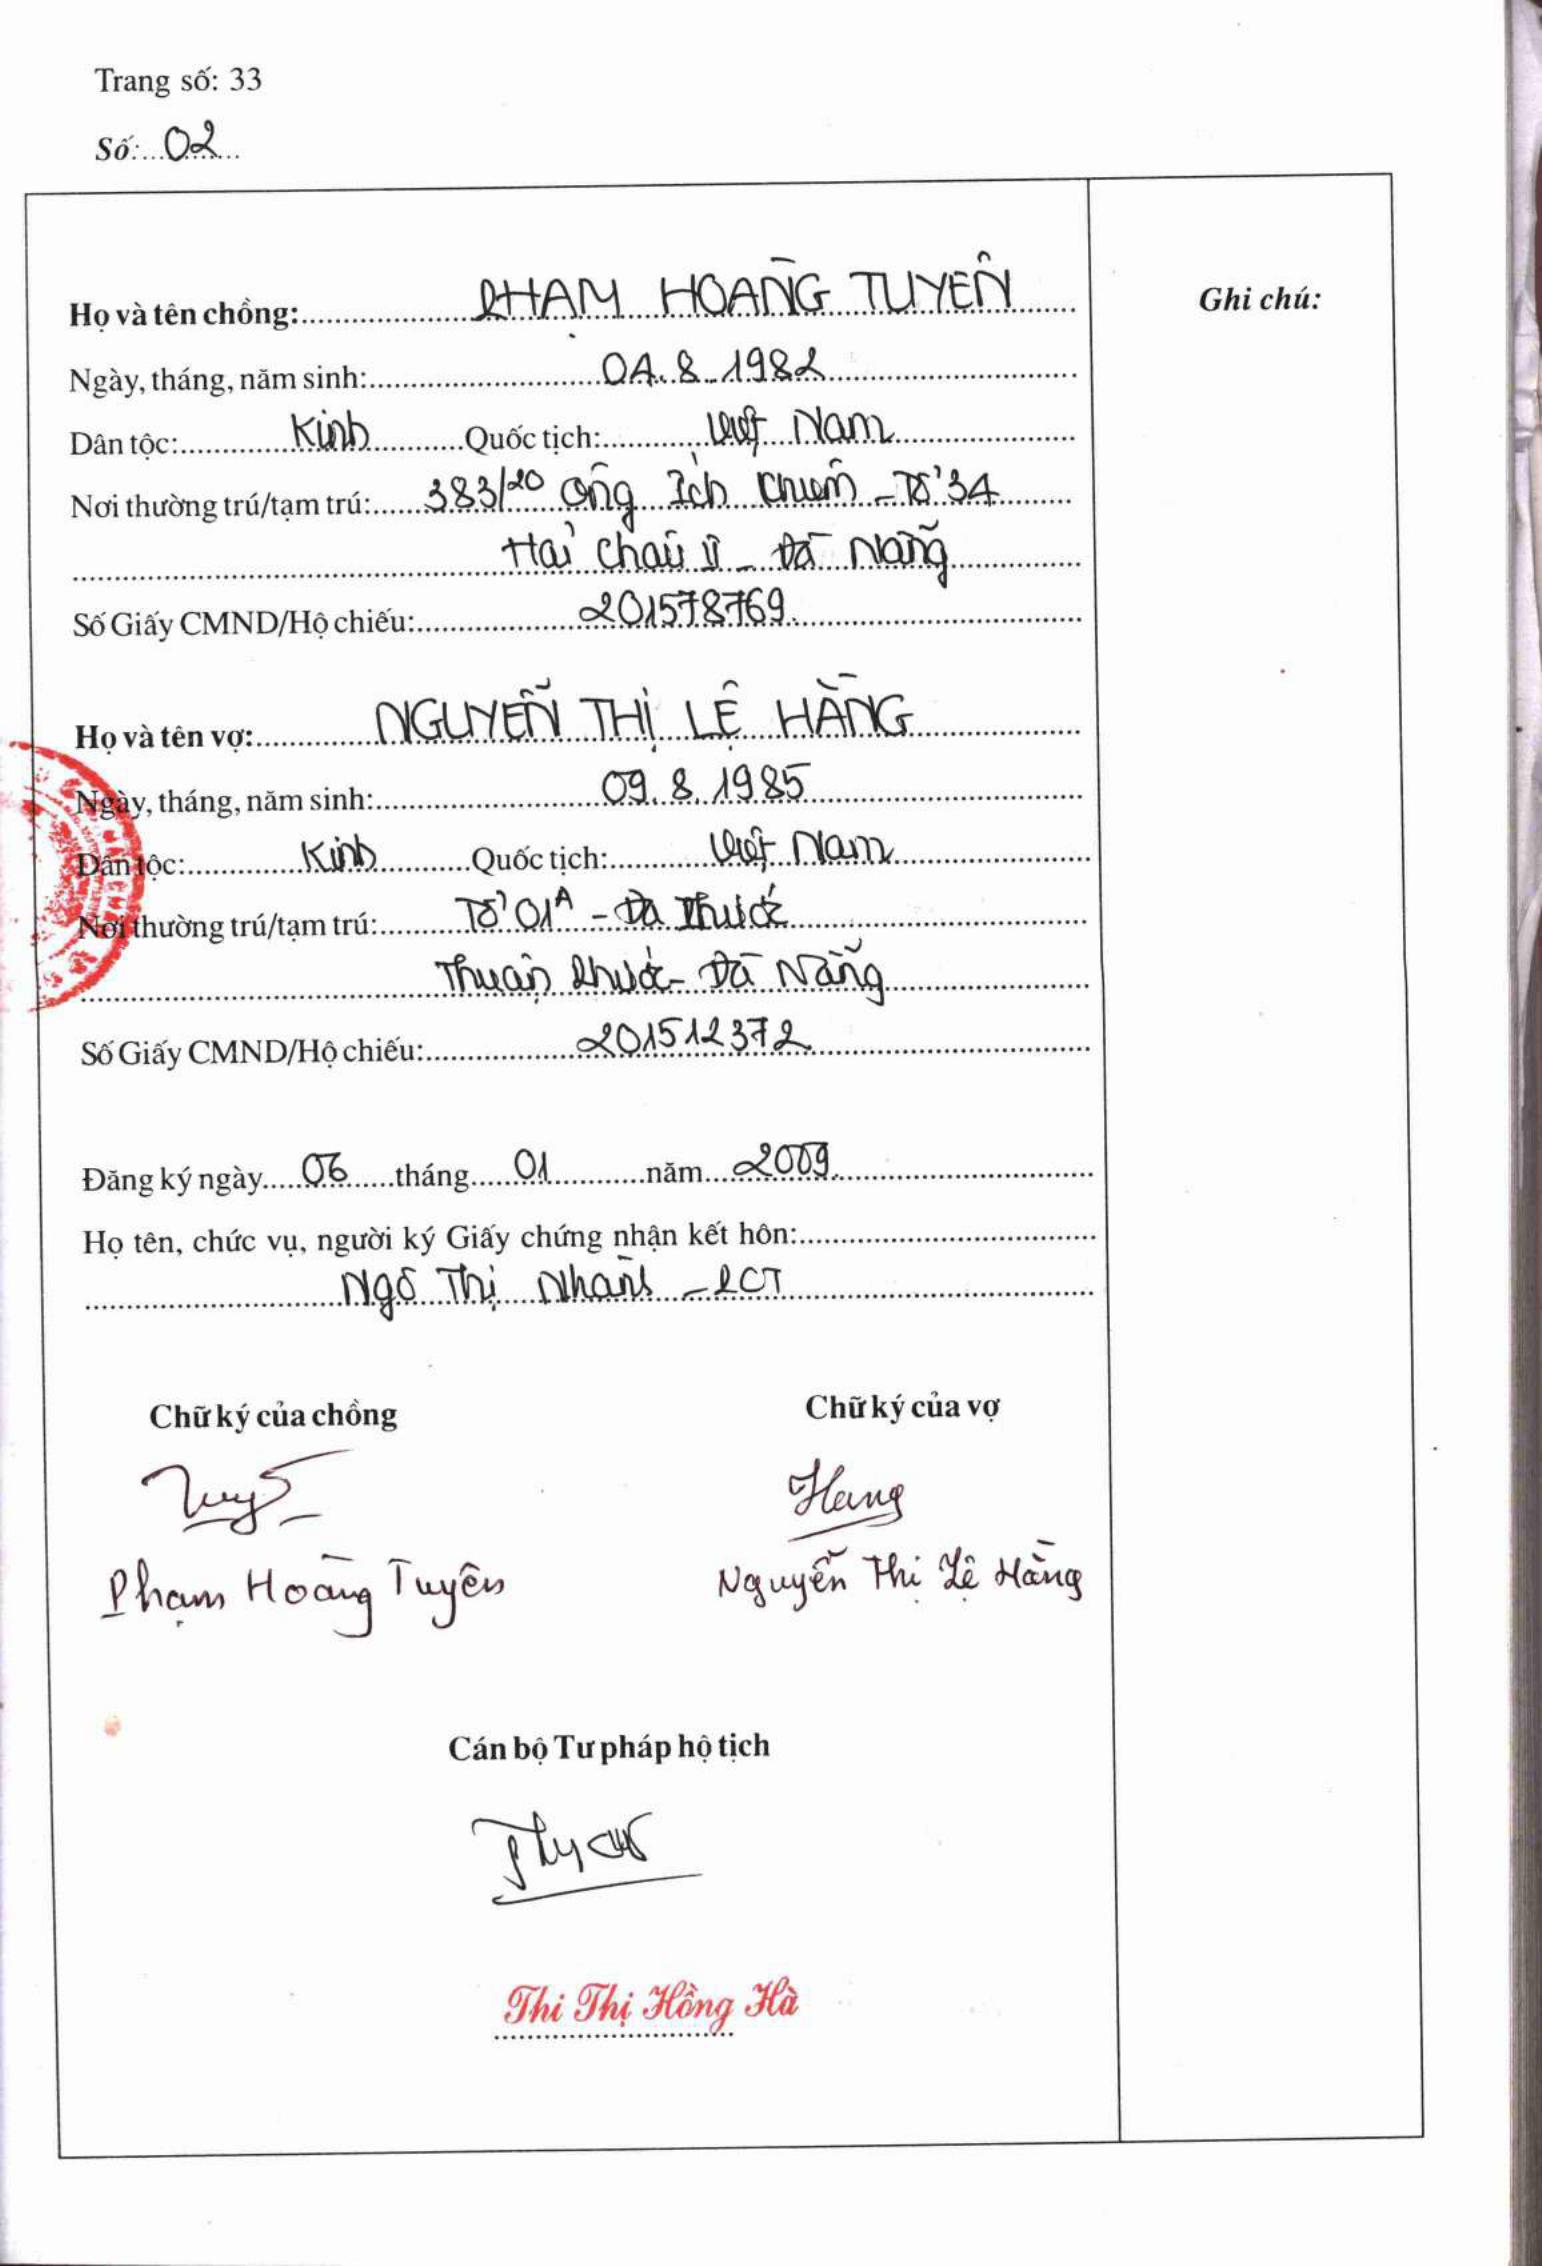 Trang số: 33
Số: 02
Họ và tên chồng: PHẠM HOÀNG TUYÊN
Ghi chú:
Ngày, tháng, năm sinh: 04.8.1982
Dân tộc: Kinh Quốc tịch: Việt Nam
Nơi thường trú/tạm trú: 383/20 Ông Ích Khiêm - Tổ 34
Hải Châu II - Đà Nẵng
Số Giấy CMND/Hộ chiếu: 201578769
Họ và tên vợ: NGUYỄN THỊ LỆ HẰNG
Ngày, tháng, năm sinh: 09.8.1985
Dân tộc: Kinh Quốc tịch: Việt Nam
Nơi thường trú/tạm trú: Tổ 01A - Đa Phước
Thuận Phước - Đà Nẵng
Số Giấy CMND/Hộ chiếu: 201512372
Đăng ký ngày 06 tháng 01 năm 2009
Họ tên, chức vụ, người ký Giấy chứng nhận kết hôn:
Ngô Thị Nhàn - PCT
Chữ ký của chồng Chữ ký của vợ
Hang
Phạm Hoàng Tuyên Nguyễn Thị Lệ Hằng
Cán bộ Tư pháp hộ tịch
Thi Thị Hồng Hà